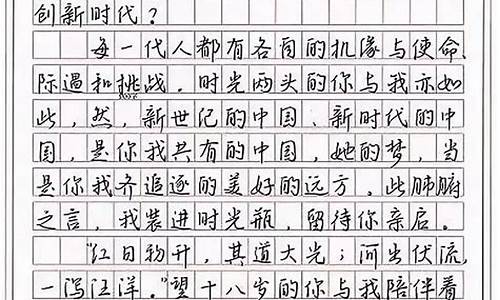 创新时代？
每一代人都有各自的机缘与使命、
际遇和挑战。时光两头的你与我亦如
此，然，新世纪的中国、新时代的中
国，是你我共有的中国，她的梦，当
是你我齐追逐的美好的远方。此肺腑
之言，我装进时光瓶，留待你亲启。
“红日初升，其道大光；河出伏流，
一泻汪洋。”望十八岁的你与我陪伴着